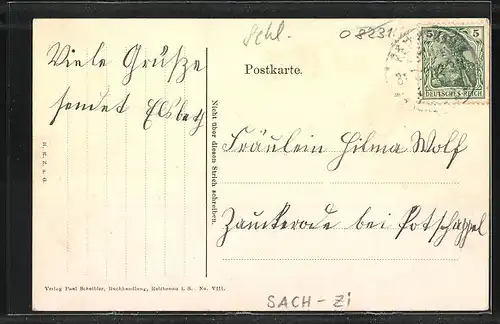 Schl.
O 8231
Postkarte.
5 5
DEUTSCHES REICH
Viele Grüsze
sendet Elsbeth
Nicht über diesen Strich schreiben.
Fräulein Hilma Wolf
Zauckerode bei Potschappel
Verlag Paul Scheibler, Buchhandlung, Holzhenau i. S. No. VIII.
SACH-Zi